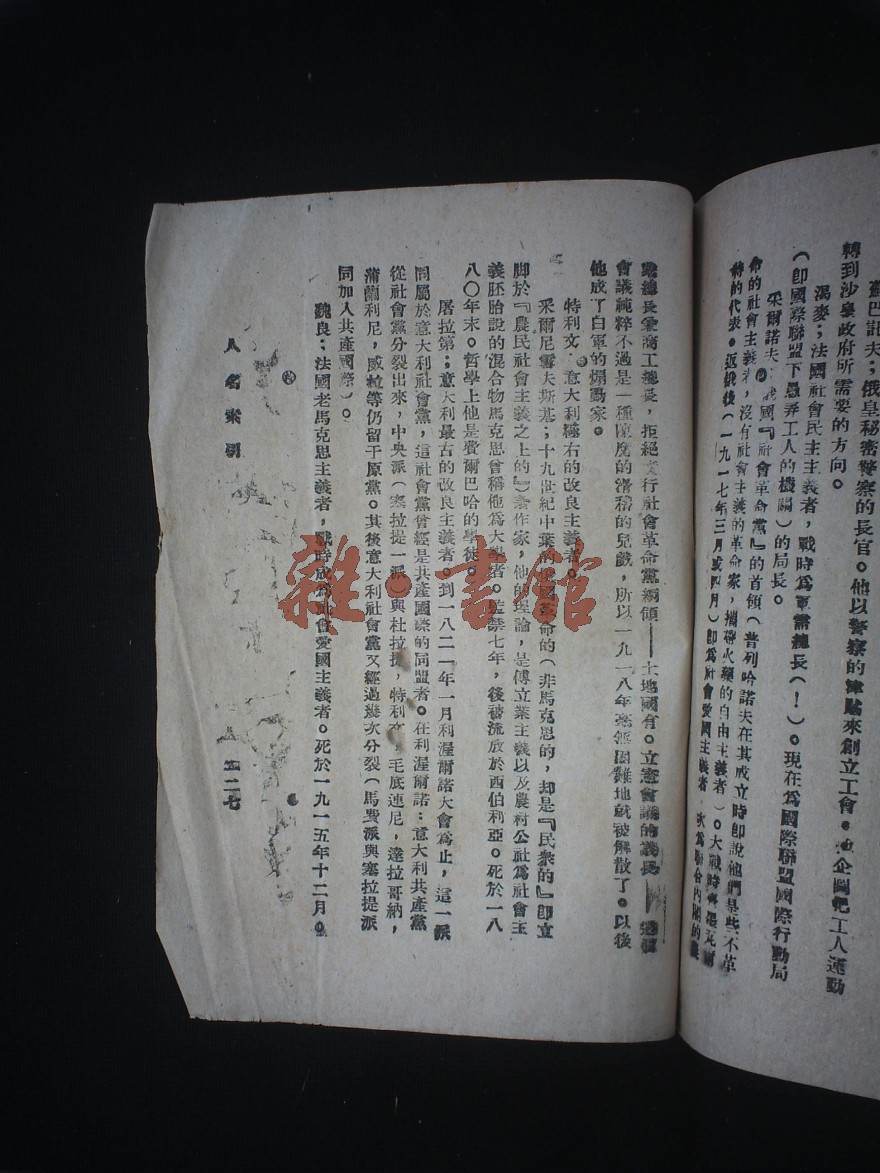 蘇巴託夫；俄皇秘密警察的長官。他以警察的津貼來創立工會。他企圖把工人運動
轉到沙皇政府所需要的方向。
渴麥；法國社會民主主義者，戰時為軍需總長（！）。現在為國際聯盟國際行動局
（即國際聯盟下愚弄工人的機關）的局長。
采爾諾夫；俄國『社會革命黨』的首領（普列哈諾夫在其成立時即說他們是些不革
命的社會主義者，沒有社會主義的革命家，攜帶火藥的自由主義者）。大戰時齊
特的代表。返俄後（一九一七年三月或四月）即為社會愛國主義者，為聯合內閣的農
業總長兼商工總長，拒絕實行社會革命黨綱領——土地國有。立憲會議的議長——這個
會議純粹不過是一種陳腐的滑稽的兒戲，所以一九一八年毫無困難地就被解散了。以後
他成了白軍的煽動家。
特利文；意大利極右的改良主義者。
采爾尼雪夫斯基；十九世紀中葉的俄國革命的（非馬克思的，却是『民衆的』即立
脚於『農民社會主義之上的』）著作家，他的理論，是傅立業主義以及農村公社為社會主
義胚胎說的混合物馬克思曾稱他為大學者。監禁七年，後被流放於西伯利亞。死於一八
八〇年末。哲學上他是費爾巴哈的學徒。
屠拉第；意大利最古的改良主義者。到一八二一年一月利渥爾諾大會為止，這一派
同屬於意大利社會黨，這社會黨曾經是共產國際的同盟者。在利渥爾諾：意大利共產黨
從社會黨分裂出來，中央派（塞拉提一派）與杜拉提，特利文，毛底連尼，達拉哥納，
蒲蘭利尼，威拉等仍留于原黨。其後意大利社會黨又經過幾次分裂（馬費派與塞拉提派
同加入共產國際）。
魏良；法國老馬克思主義者，戰時成為社會愛國主義者。死於一九一五年十二月。
人名索引
二二七
雜·書館